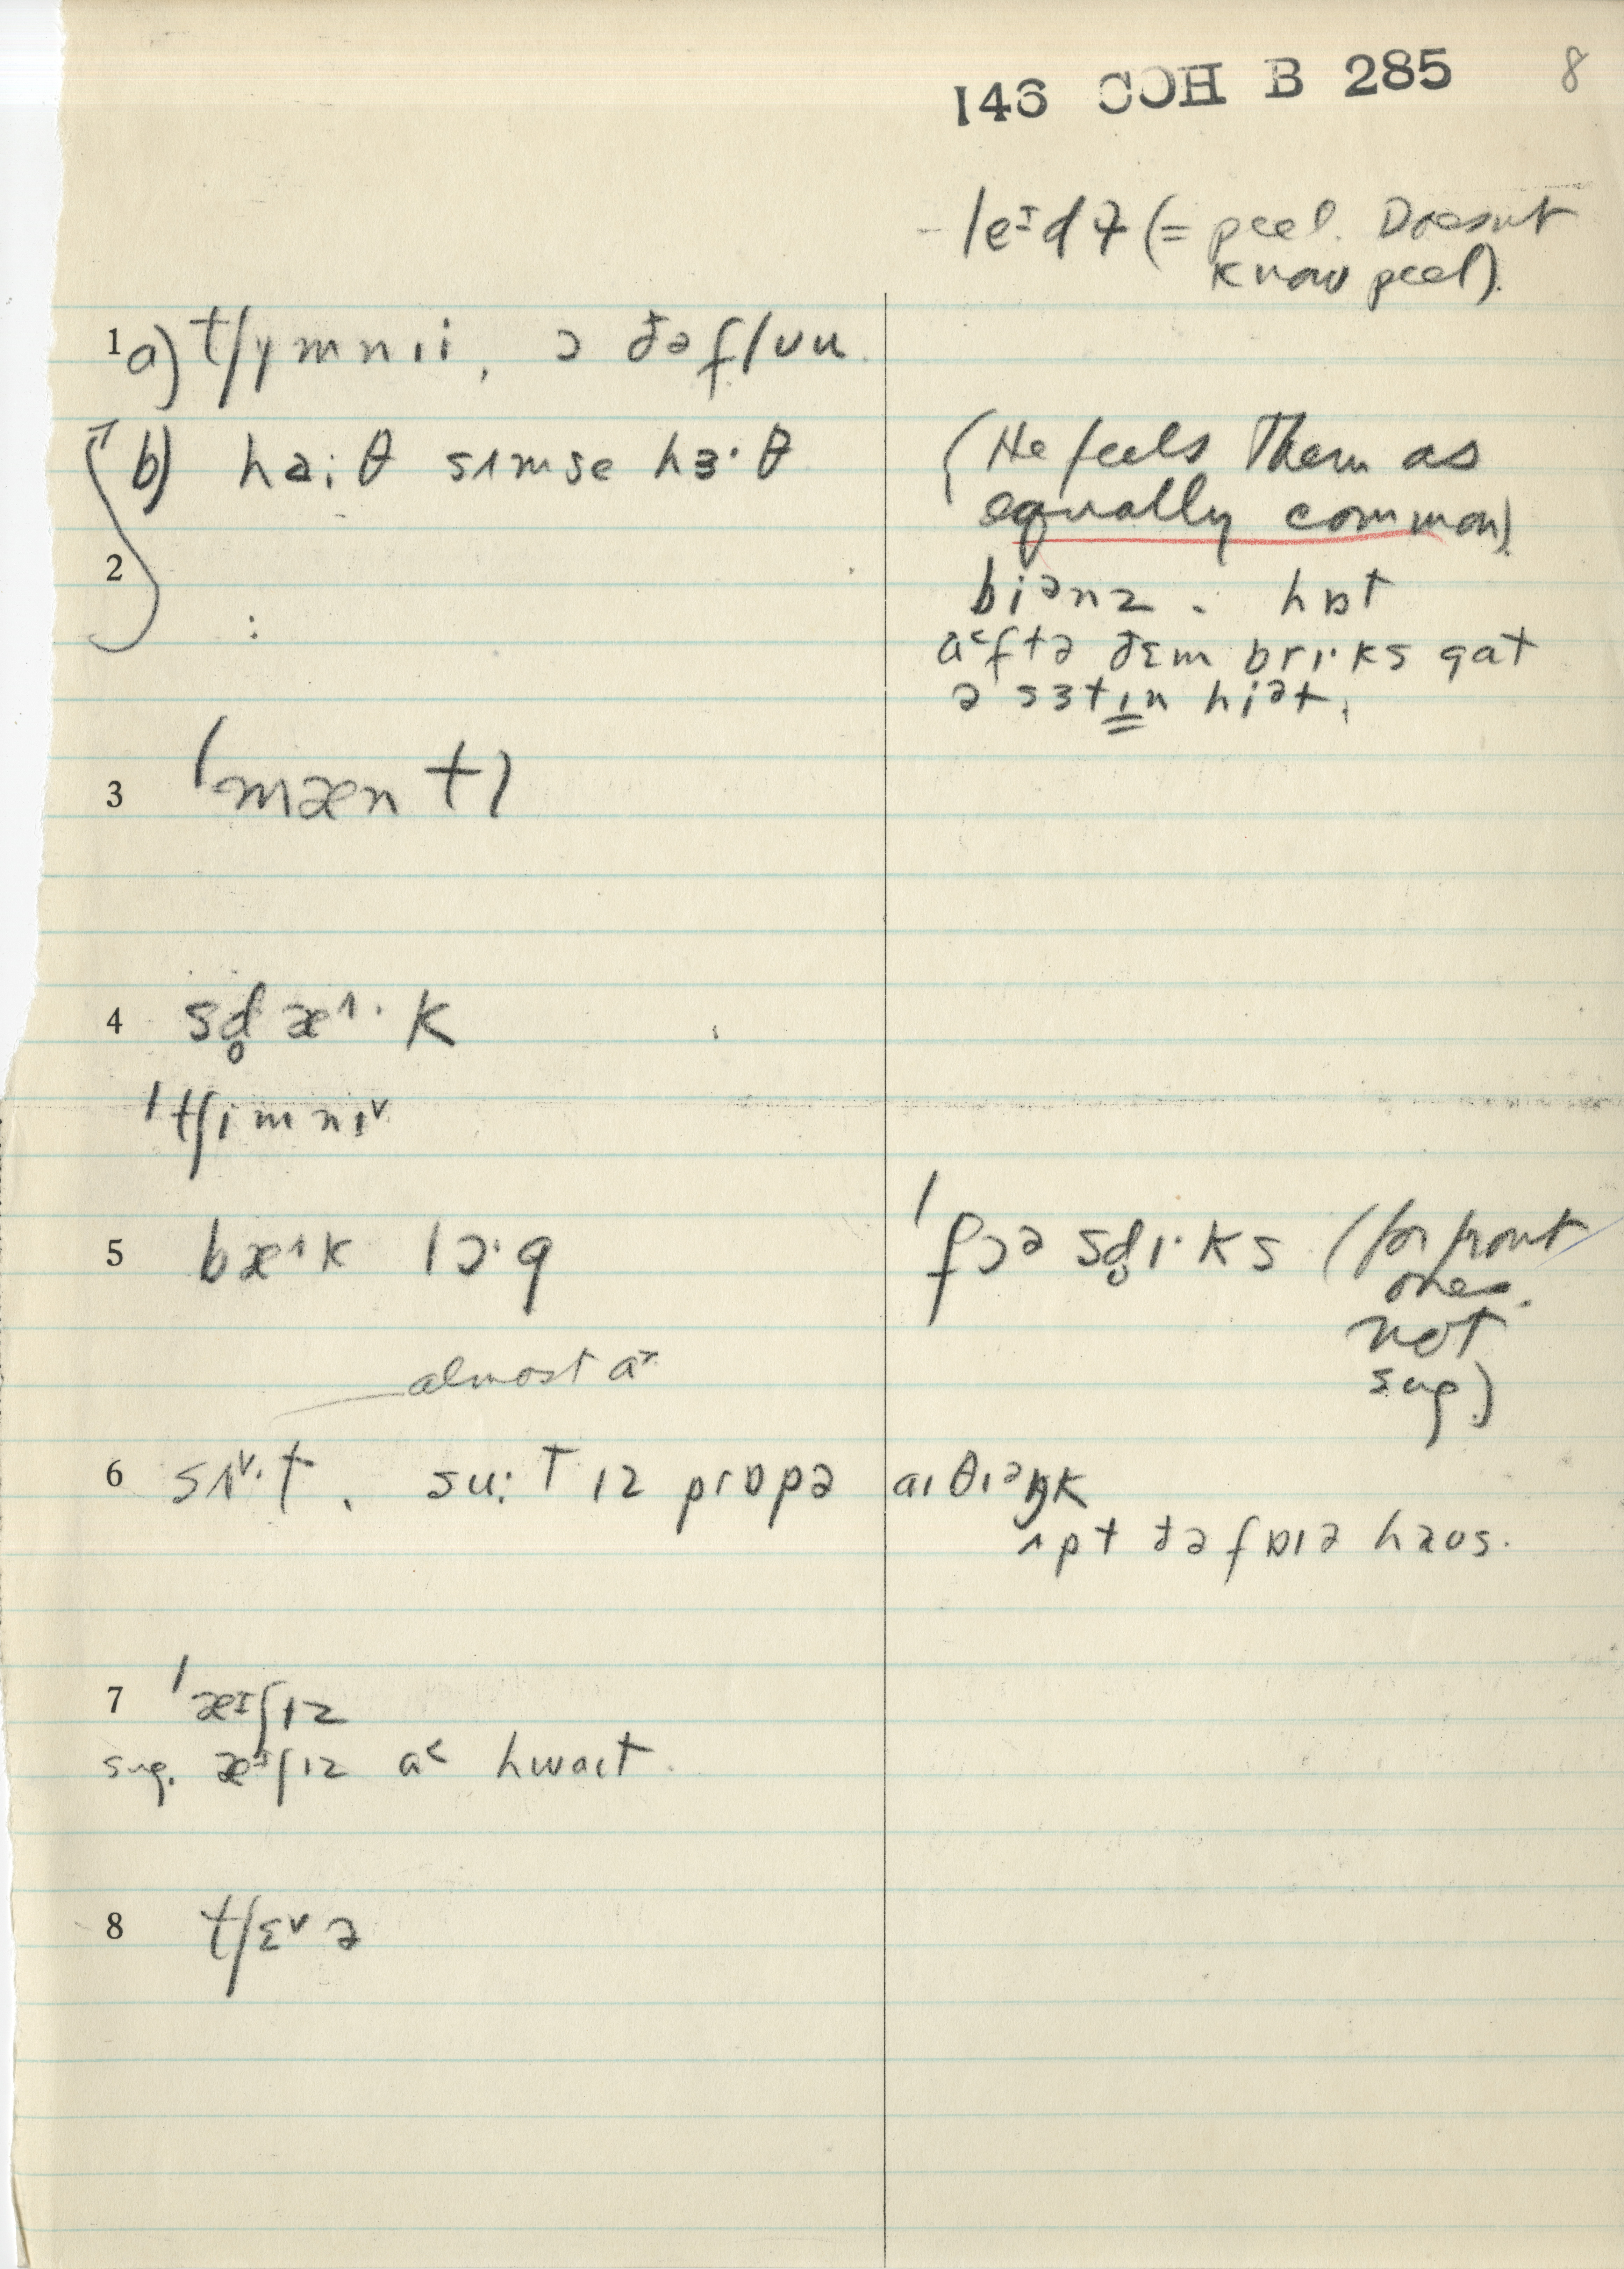 146 COH B 285 8
leɪdɫ (= peel. Doesnt
know peel).
1 a) tʃɣmnıi, ɔ ðəflʊu.
b) ha:θ sɪmse hɜ·θ (He feels them as
equally common)
2 biənz. hɒt
a˂ftə ðɛm brɪ·ks gat
ə sɜtɪn hiət.
3 ˈmæntɪ
4 sd̥æ˄·k
ˈtʃimnɪ˅
5 bæ˄k lɔ·g ˈfɔə sd̥ɪ·ks (for front
ones.
not
sug.)
almost a˃
6 sʌ˅·t. su:t ɪz prɒpə aɪ θiəŋk
ʌpt ðə fɒɪə haʊs.
7 ˈæɪʃɪz
sug. æɪʃɪz a˂ hwaɪt.
8 tʃɛ˅ə